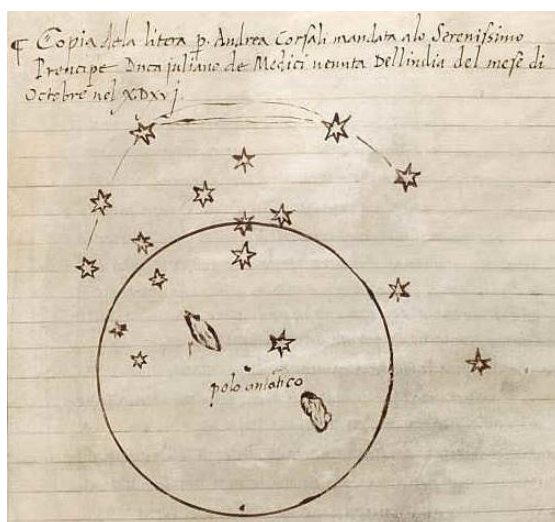 ¶ Copia dela litera p. Andrea Corsali mandata alo Serenissimo
Principe Duca juliano de Medici venuta Dellindia del mese di
Octobre nel XDxvj
polo antatico